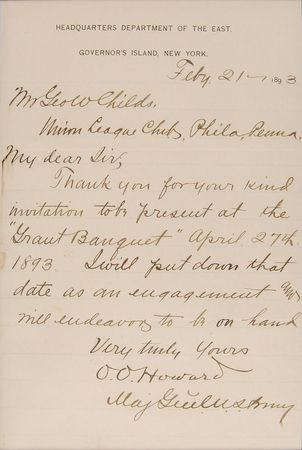 HEADQUARTERS DEPARTMENT OF THE EAST.
GOVERNOR'S ISLAND, NEW YORK.
Feby 21– 1893
Mr Geo W Childs,
Union League Club, Phila, Penna.
My dear Sir,
Thank you for your kind
invitation to be present at the
"Grant Banquet" April 27th
1893. I will put down that
date as an engagement and
will endeavor to be on hand
Very truly Yours
O. O. Howard
Maj Genl U.S. Army